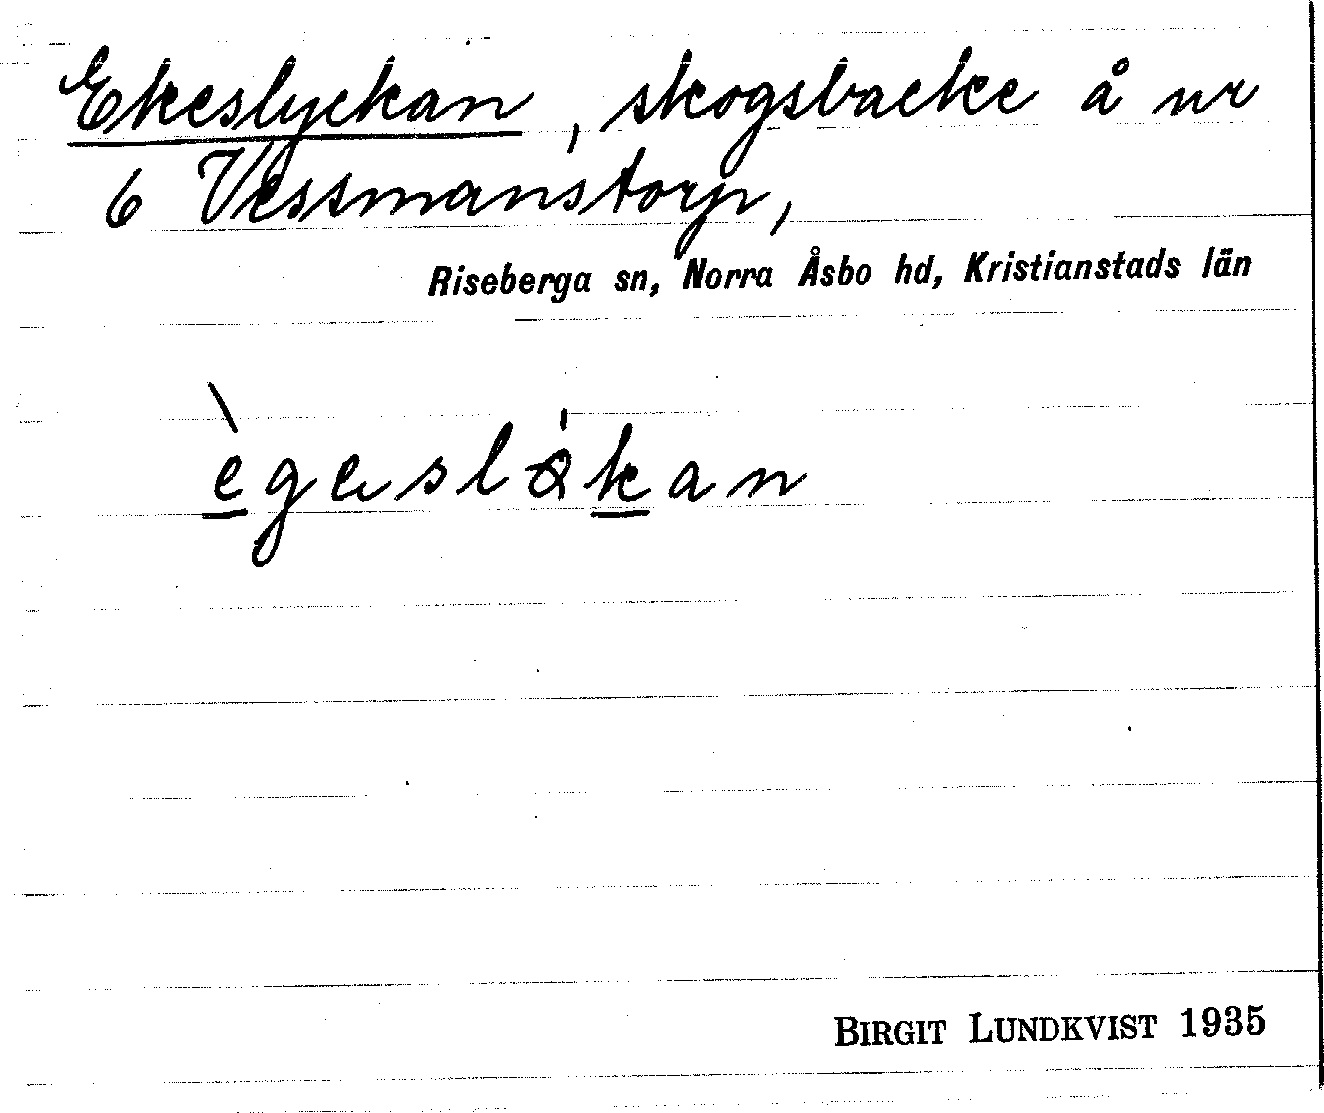 Ekeslyckan, skogsbacke å nr
6 Vessmanstorp,
Riseberga sn, Norra Åsbo hd, Kristianstads län
BIRGIT LUNDKVIST 1935